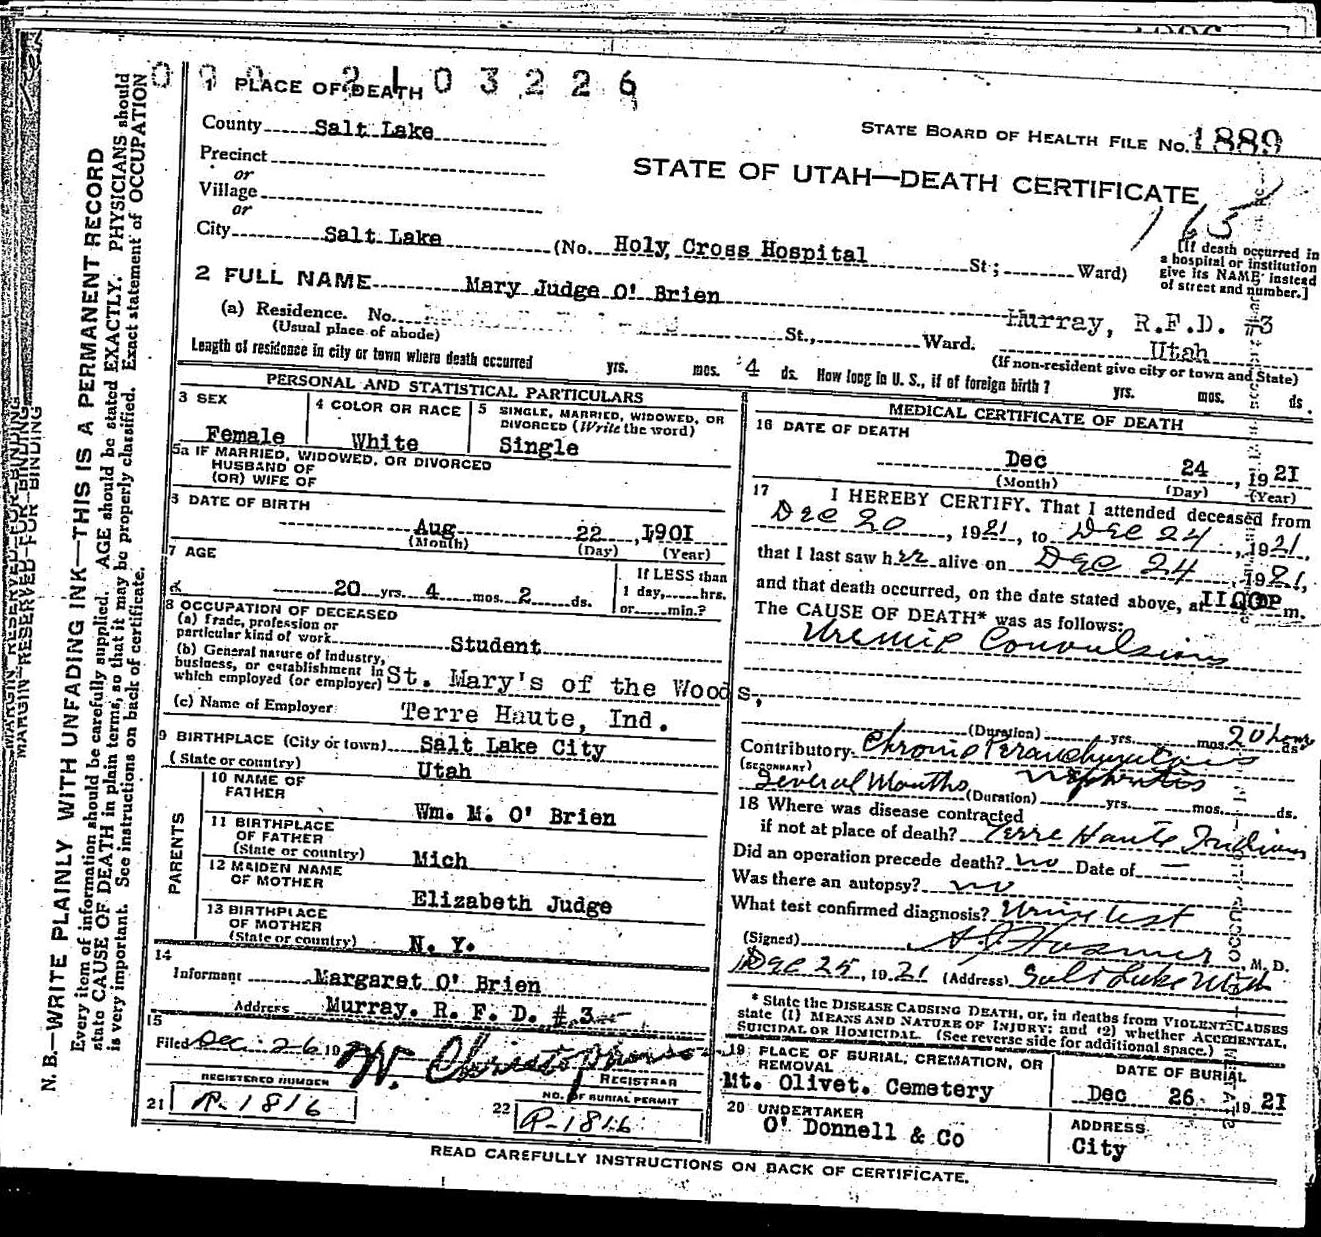 090 2103226
1 PLACE OF DEATH
County Salt Lake
STATE BOARD OF HEALTH FILE No. 1889
Precinct
or
STATE OF UTAH—DEATH CERTIFICATE
Village
or
165
City Salt Lake (No. Holy Cross Hospital St; Ward)
[If death occurred in
a hospital or institution
give its NAME instead
of street and number.]
2 FULL NAME Mary Judge O' Brien
(a) Residence. No. St., Ward. Murray, R.F.D. #3
(Usual place of abode) Utah
(If non-resident give city or town and State)
Length of residence in city or town where death occurred yrs. mos. 4 ds. How long in U. S., if of foreign birth? yrs. mos. ds.
PERSONAL AND STATISTICAL PARTICULARS
3 SEX Female
4 COLOR OR RACE White
5 SINGLE, MARRIED, WIDOWED, OR
DIVORCED (Write the word)
Single
5a IF MARRIED, WIDOWED, OR DIVORCED
HUSBAND OF
(OR) WIFE OF
DATE OF BIRTH
Aug 22, 1901
(Month) (Day) (Year)
7 AGE
20 yrs. 4 mos. 2 ds.
If LESS than
1 day, hrs.
or min.?
8 OCCUPATION OF DECEASED
(a) Trade, profession or
particular kind of work Student
(b) General nature of Industry,
business, or establishment in
which employed (or employer) St. Mary's of the Woods,
(c) Name of Employer Terre Haute, Ind.
9 BIRTHPLACE (City or town) Salt Lake City
(State or country) Utah
PARENTS
10 NAME OF
FATHER
Wm. M. O' Brien
11 BIRTHPLACE
OF FATHER
(State or country) Mich
12 MAIDEN NAME
OF MOTHER
Elizabeth Judge
13 BIRTHPLACE
OF MOTHER
(State or country) N. Y.
14
Informant Margaret O' Brien
Address Murray. R. F. D. #.3
15
Filed Dec 26 19 W. Christopherson
REGISTRAR
REGISTERED NUMBER
21 R-1816
NO. OF BURIAL PERMIT
22 R-1816
MEDICAL CERTIFICATE OF DEATH
16 DATE OF DEATH
Dec 24, 1921
(Month) (Day) (Year)
17 I HEREBY CERTIFY. That I attended deceased from
Dec 20, 1921, to Dec 24, 1921,
that I last saw her alive on Dec 24, 1921,
and that death occurred, on the date stated above, at 1100P m.
The CAUSE OF DEATH* was as follows:
Uremic Convulsions
(Duration) yrs. mos. 20 hours ds.
Contributory Chronic Parenchymatous
(SECONDARY) Nephritis
Several Months (Duration) yrs. mos. ds.
18 Where was disease contracted
if not at place of death? Terre Haute Indiana
Did an operation precede death? no Date of —
Was there an autopsy? no
What test confirmed diagnosis? Urine test
(Signed) M. D.
Dec 25, 1921 (Address) Salt Lake Utah
* State the DISEASE CAUSING DEATH, or, in deaths from VIOLENT CAUSES
state (1) MEANS AND NATURE OF INJURY; and (2) whether ACCIDENTAL,
SUICIDAL OR HOMICIDAL. (See reverse side for additional space.)
19 PLACE OF BURIAL, CREMATION, OR
REMOVAL
Mt. Olivet. Cemetery
DATE OF BURIAL
Dec 26 1921
20 UNDERTAKER
O' Donnell & Co
ADDRESS
City
READ CAREFULLY INSTRUCTIONS ON BACK OF CERTIFICATE.
MARGIN RESERVED FOR BINDING
N. B.—WRITE PLAINLY WITH UNFADING INK—THIS IS A PERMANENT RECORD
Every item of information should be carefully supplied. AGE should be stated EXACTLY. PHYSICIANS should
state CAUSE OF DEATH in plain terms, so that it may be properly classified. Exact statement of OCCUPATION
is very important. See instructions on back of certificate.